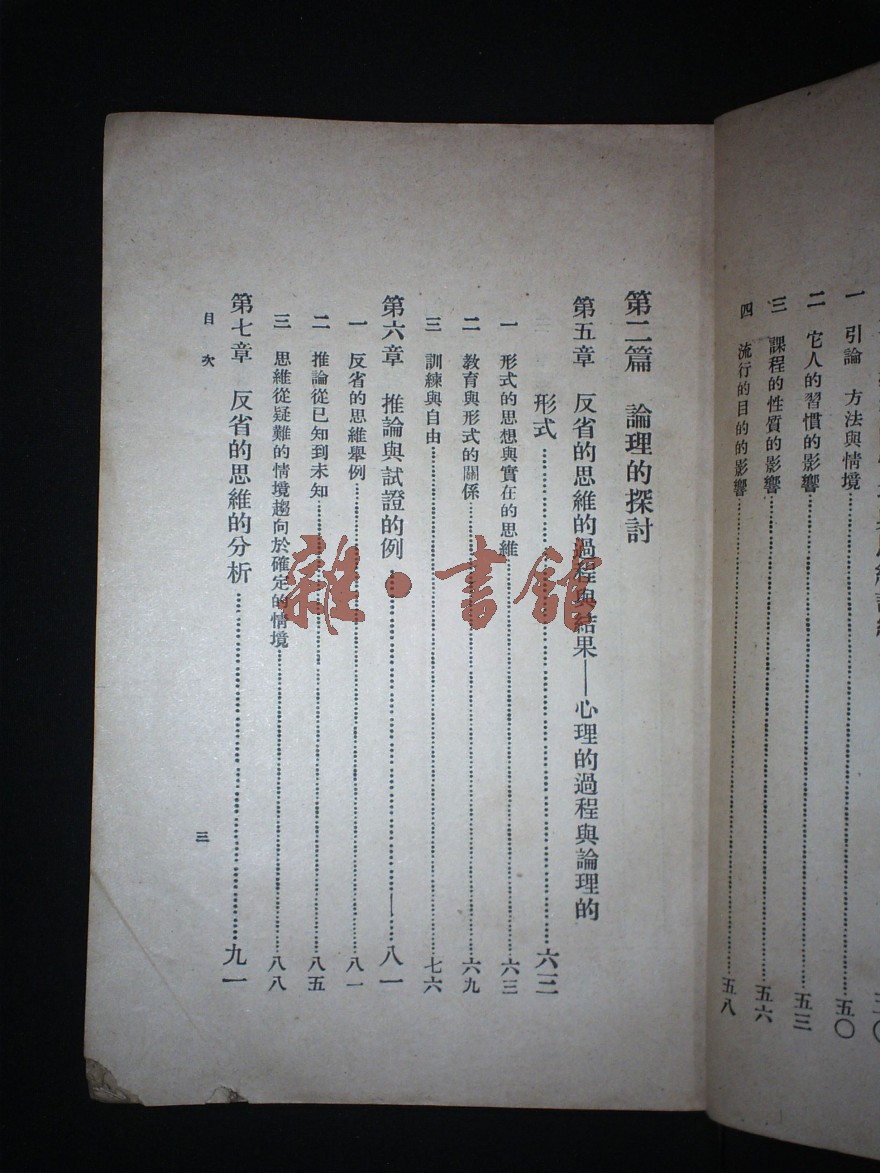 一　引論　方法與情境……五〇
二　它人的習慣的影響……五三
三　課程的性質的影響……五六
四　流行的目的的影響……五八
第二篇　論理的探討
第五章　反省的思維的過程與結果——心理的過程與論理的
形式……六三
一　形式的思想與實在的思維……六三
二　教育與形式的關係……六九
三　訓練與自由……七六
第六章　推論與試證的例……八一
一　反省的思維舉例……八一
二　推論從已知到未知……八五
三　思維從疑難的情境趨向於確定的情境……八八
第七章　反省的思維的分析……九一
目次
三
雜·書館